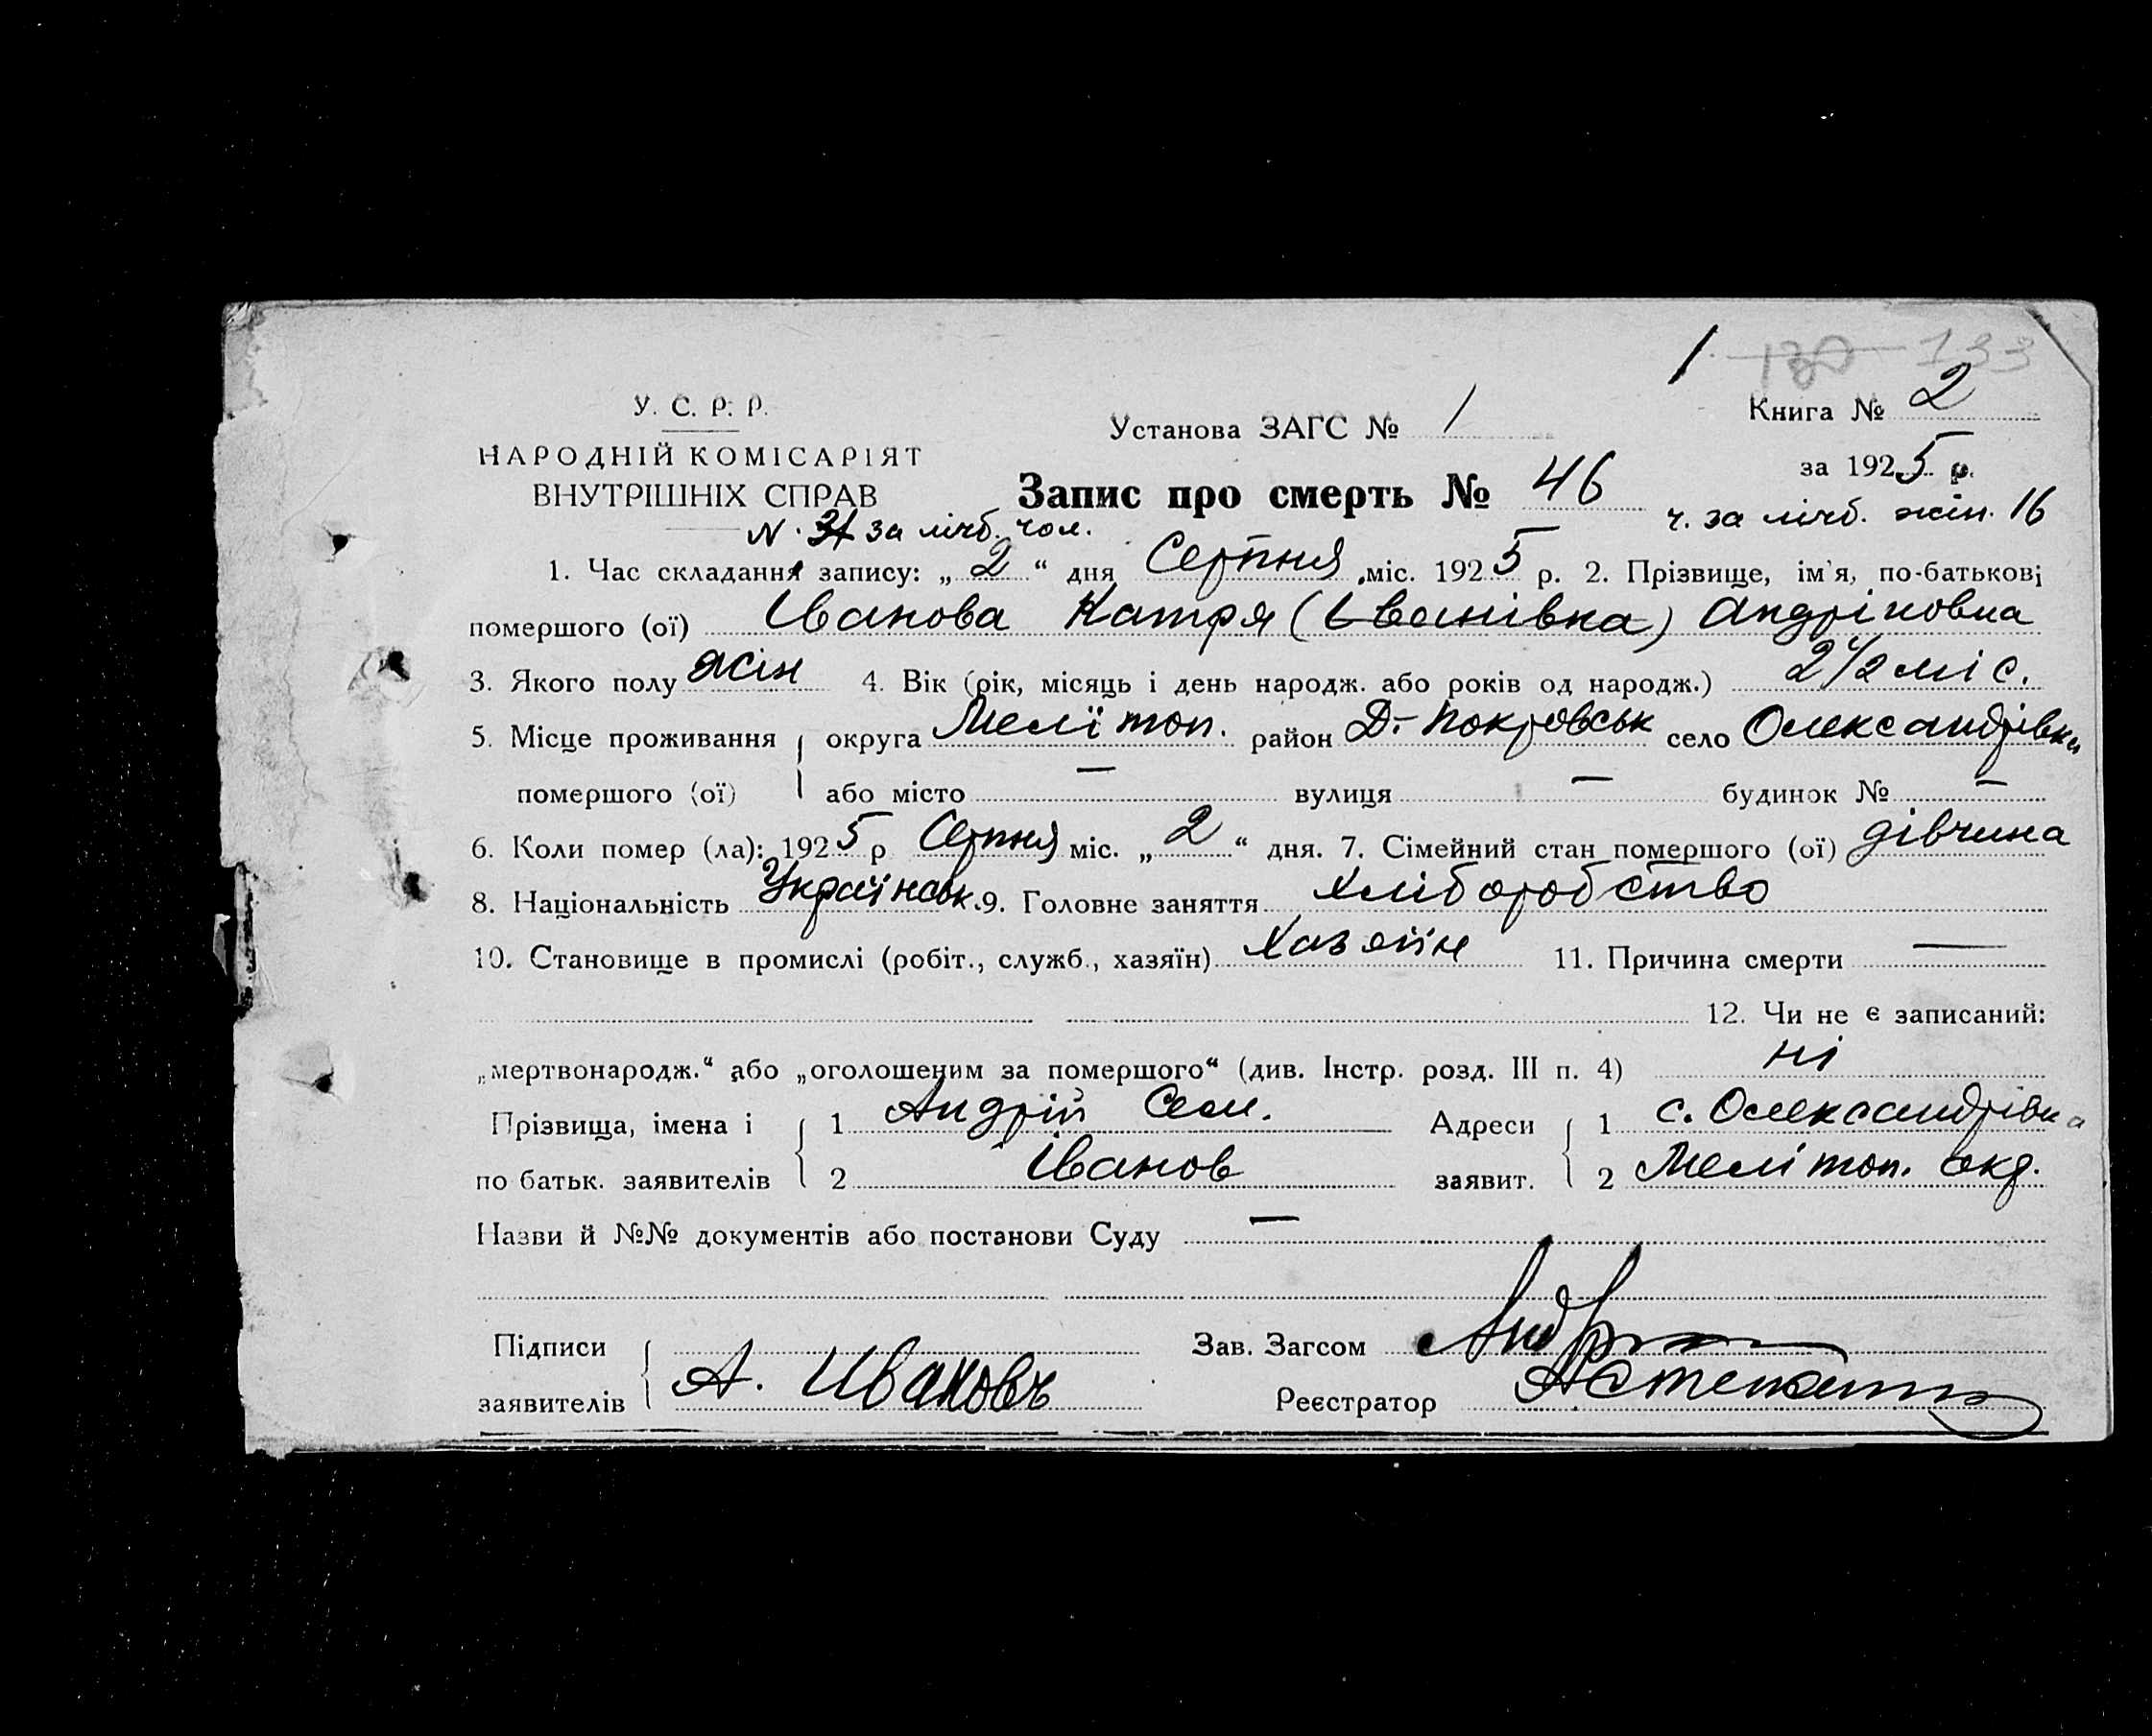 1 130 133
У. С. Р. Р.
Установа ЗАГС № 1
Книга № 2
НАРОДНІЙ КОМІСАРІЯТ
за 1925 р.
ВНУТРІШНІХ СПРАВ
Запис про смерть № 46
ч. за лічб. жін. 16
N. 31 за лічб. чол.
1. Час складання запису: „2“ дня Серпня міс. 1925 р. 2. Прізвище, ім'я, по-батькові
помершого (ої) Іванова Катря (Іванівка) Андріковна
3. Якого полу жін 4. Вік (рік, місяць і день народж. або років од народж.) 2 1/2 міс.
5. Місце проживання { округа Мелітоп. район Д.-Покровськ село Олександрівка
помершого (ої) або місто — вулиця — будинок № —
6. Коли помер (ла): 1925 р Серпня міс. „2“ дня. 7. Сімейний стан помершого (ої) дівчина
8. Національність Українськ. 9. Головне заняття хліборобство
10. Становище в промислі (робіт., служб., хазяїн) Хазяїн 11. Причина смерти —
12. Чи не є записаний:
„мертвонародж.“ або „оголошеним за помершого“ (див. Інстр. розд. III п. 4) ні
Прізвища, імена і { 1 Андрій Сем. Адреси { 1 с. Олександрівка
по батьк. заявителів 2 Іванов заявит. 2 Мелітоп. окр.
Назви й №№ документів або постанови Суду —
Підписи { Зав. Загсом
заявителів А. Ивановъ Реєстратор